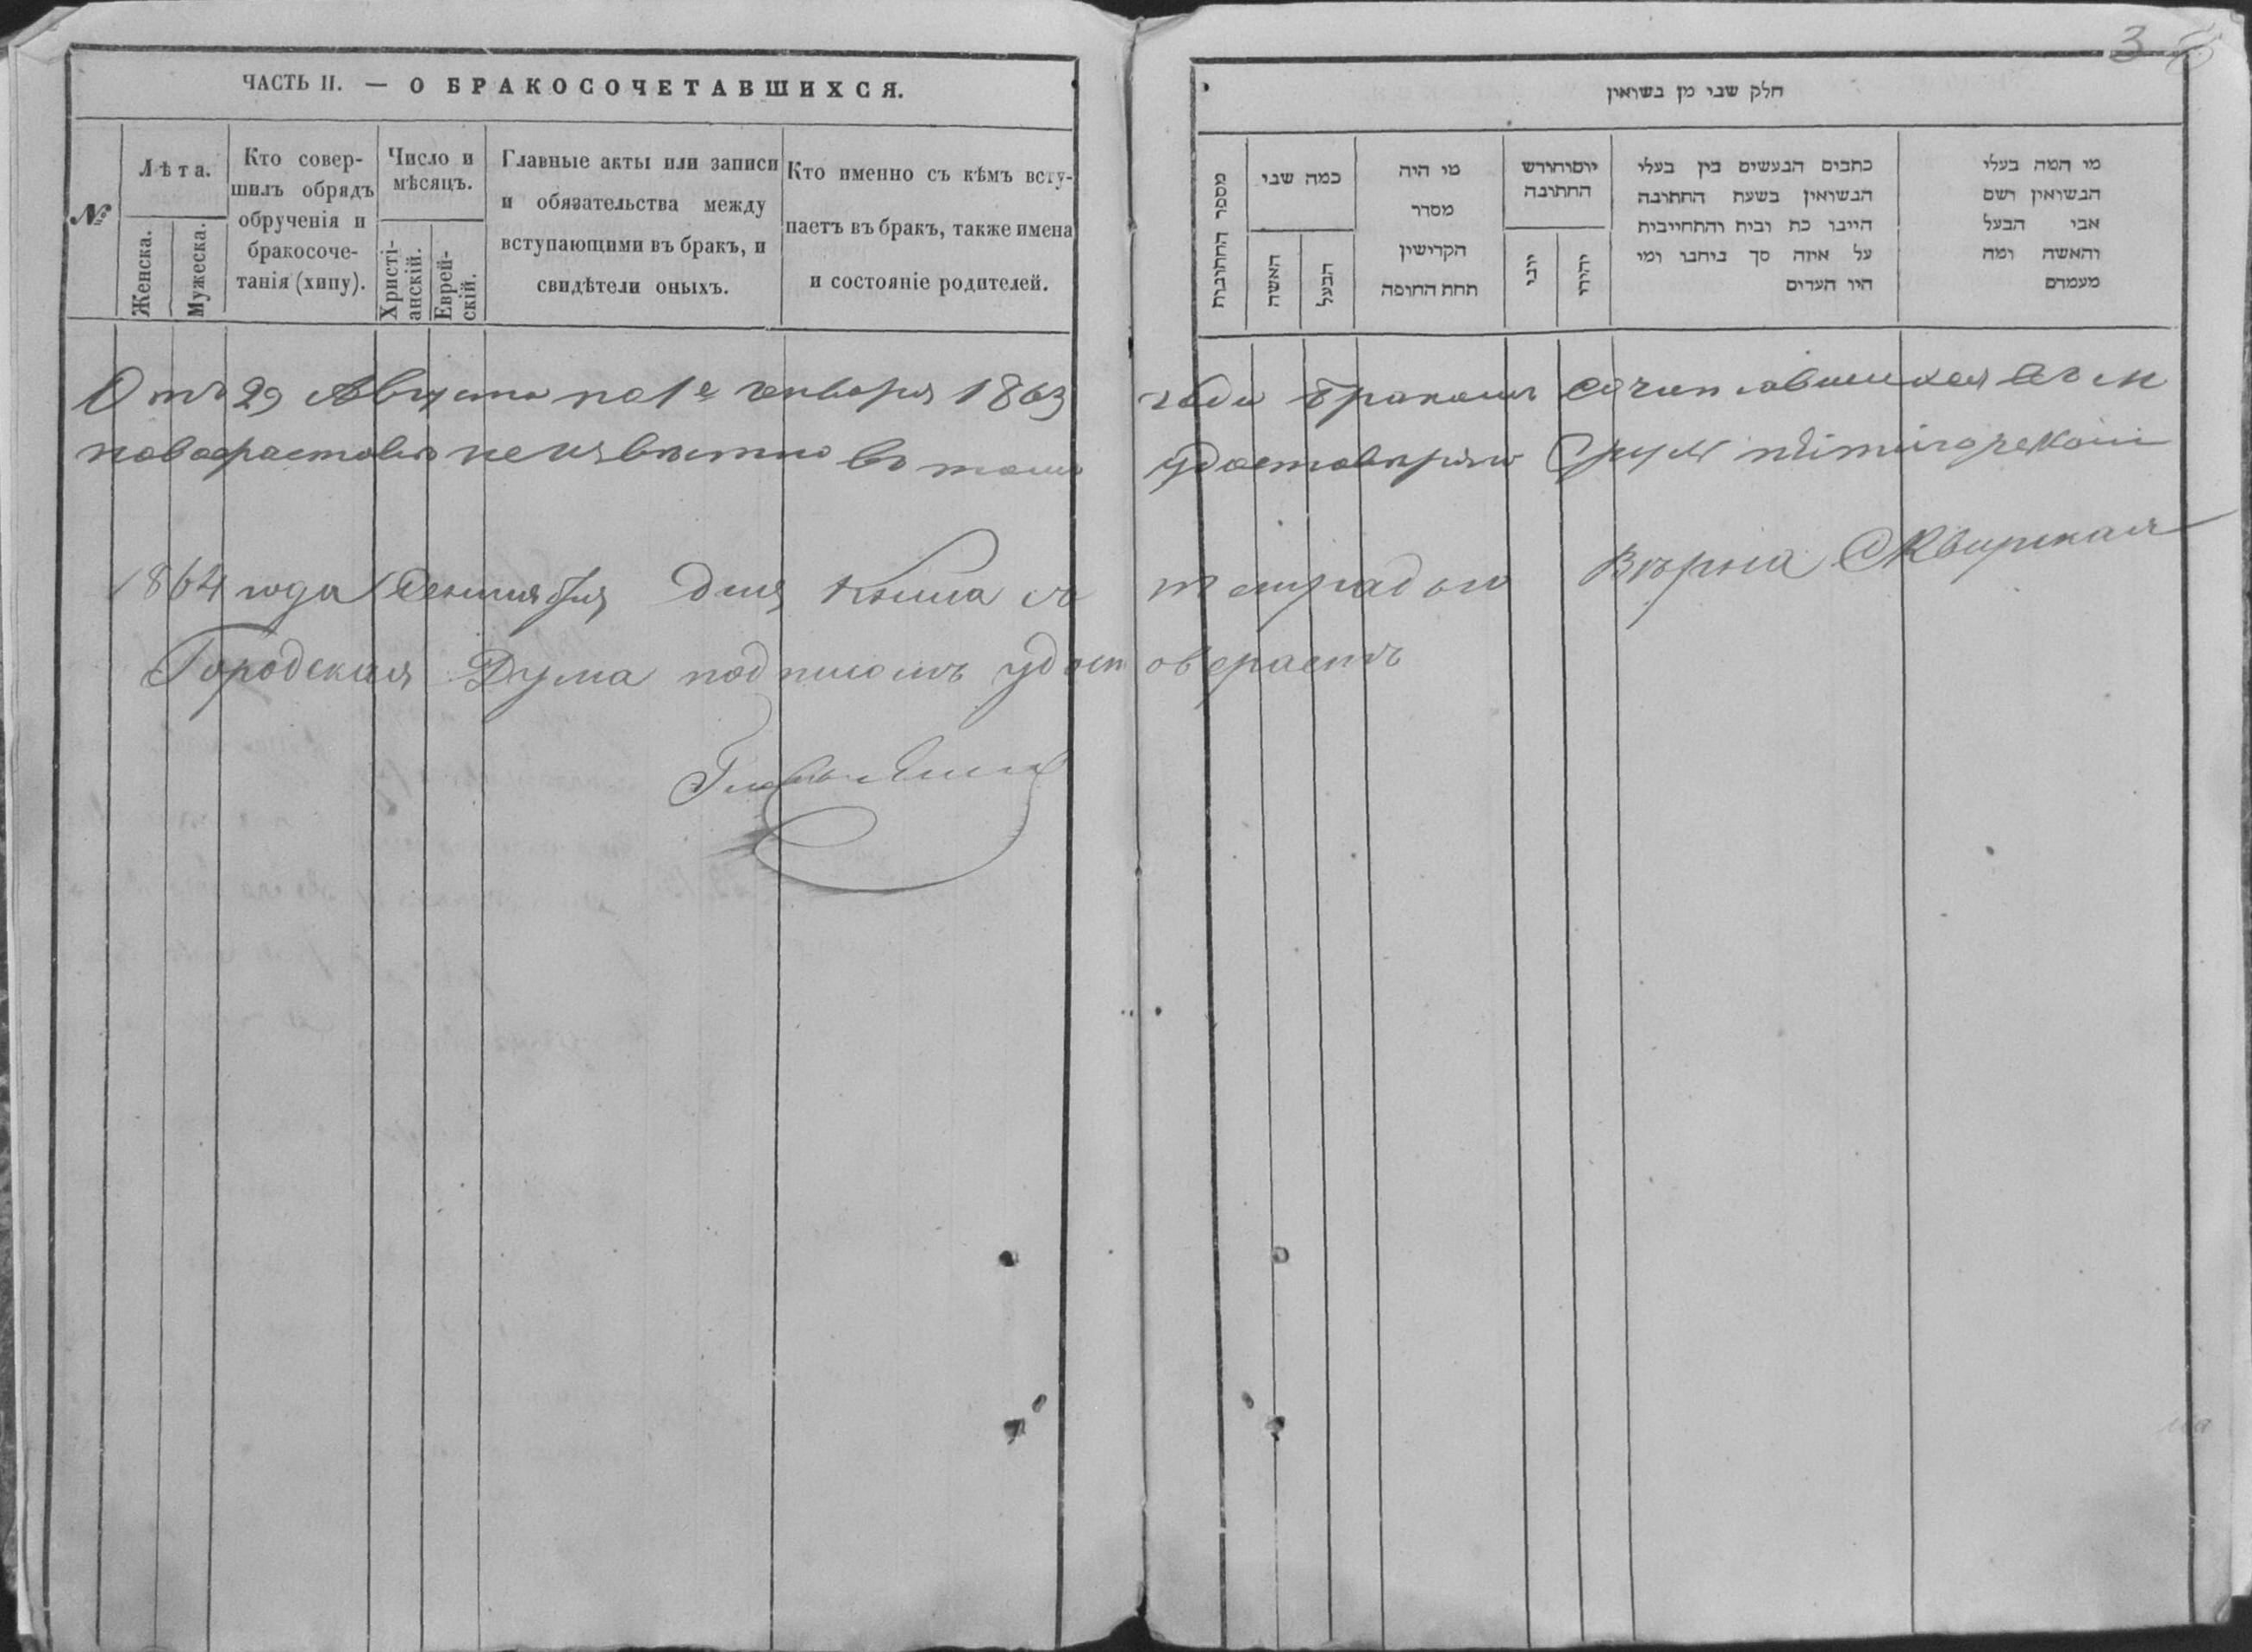 3
ЧАСТЬ II. — О БРАКОСОЧЕТАВШИХСЯ.
№
Лѣта.
Женска.
Мужеска.
Кто совер-
шилъ обрядъ
обрученія и
бракосоче-
танія (хипу).
Число и
мѣсяцъ.
Христі-
анскій.
Еврей-
скій.
Главные акты или записи
и обязательства между
вступающими въ бракъ, и
свидѣтели оныхъ.
Кто именно съ кѣмъ всту-
паетъ въ бракъ, также имена
и состояніе родителей.
חלק שני מן נשואין
מספר החתונות
כמה שני
האשה
הבעל
מי היה
מסדר
הקדישין
תחת החופה
יוםוחודש
החתונה
יוני
יהודי
כתבים הנעשים בין בעלי
הנשואין בשעת החתונה
היינו כת ובית והתחייבית
על איזה סך ביחבו ומי
היו העדים
מי המה בעלי
הנשואין ושם
אבי הבעל
והאשה ומה
מעמדם
Отъ 29 Августа по 1е Генваря 1863 года бракомъ сочетавшихся
неизвѣстно въ томъ удостовѣряю
1864 года дня книга съ тетрадью Вѣрна Сквирская
Городская Дума подписомъ удостовѣраетъ